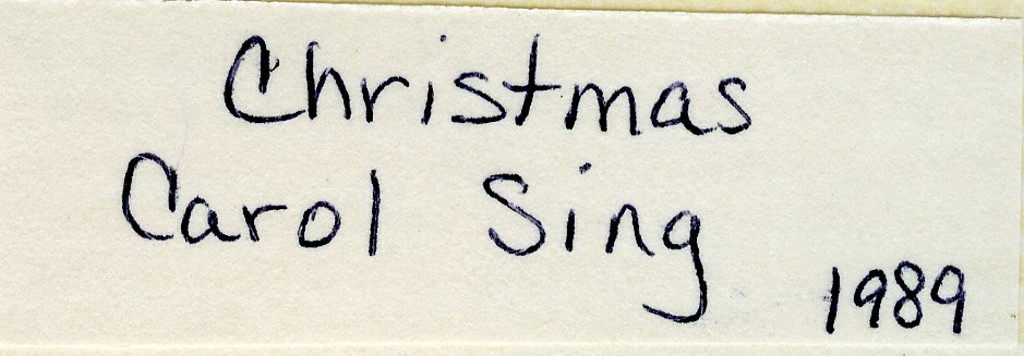 Christmas
Carol Sing
1989